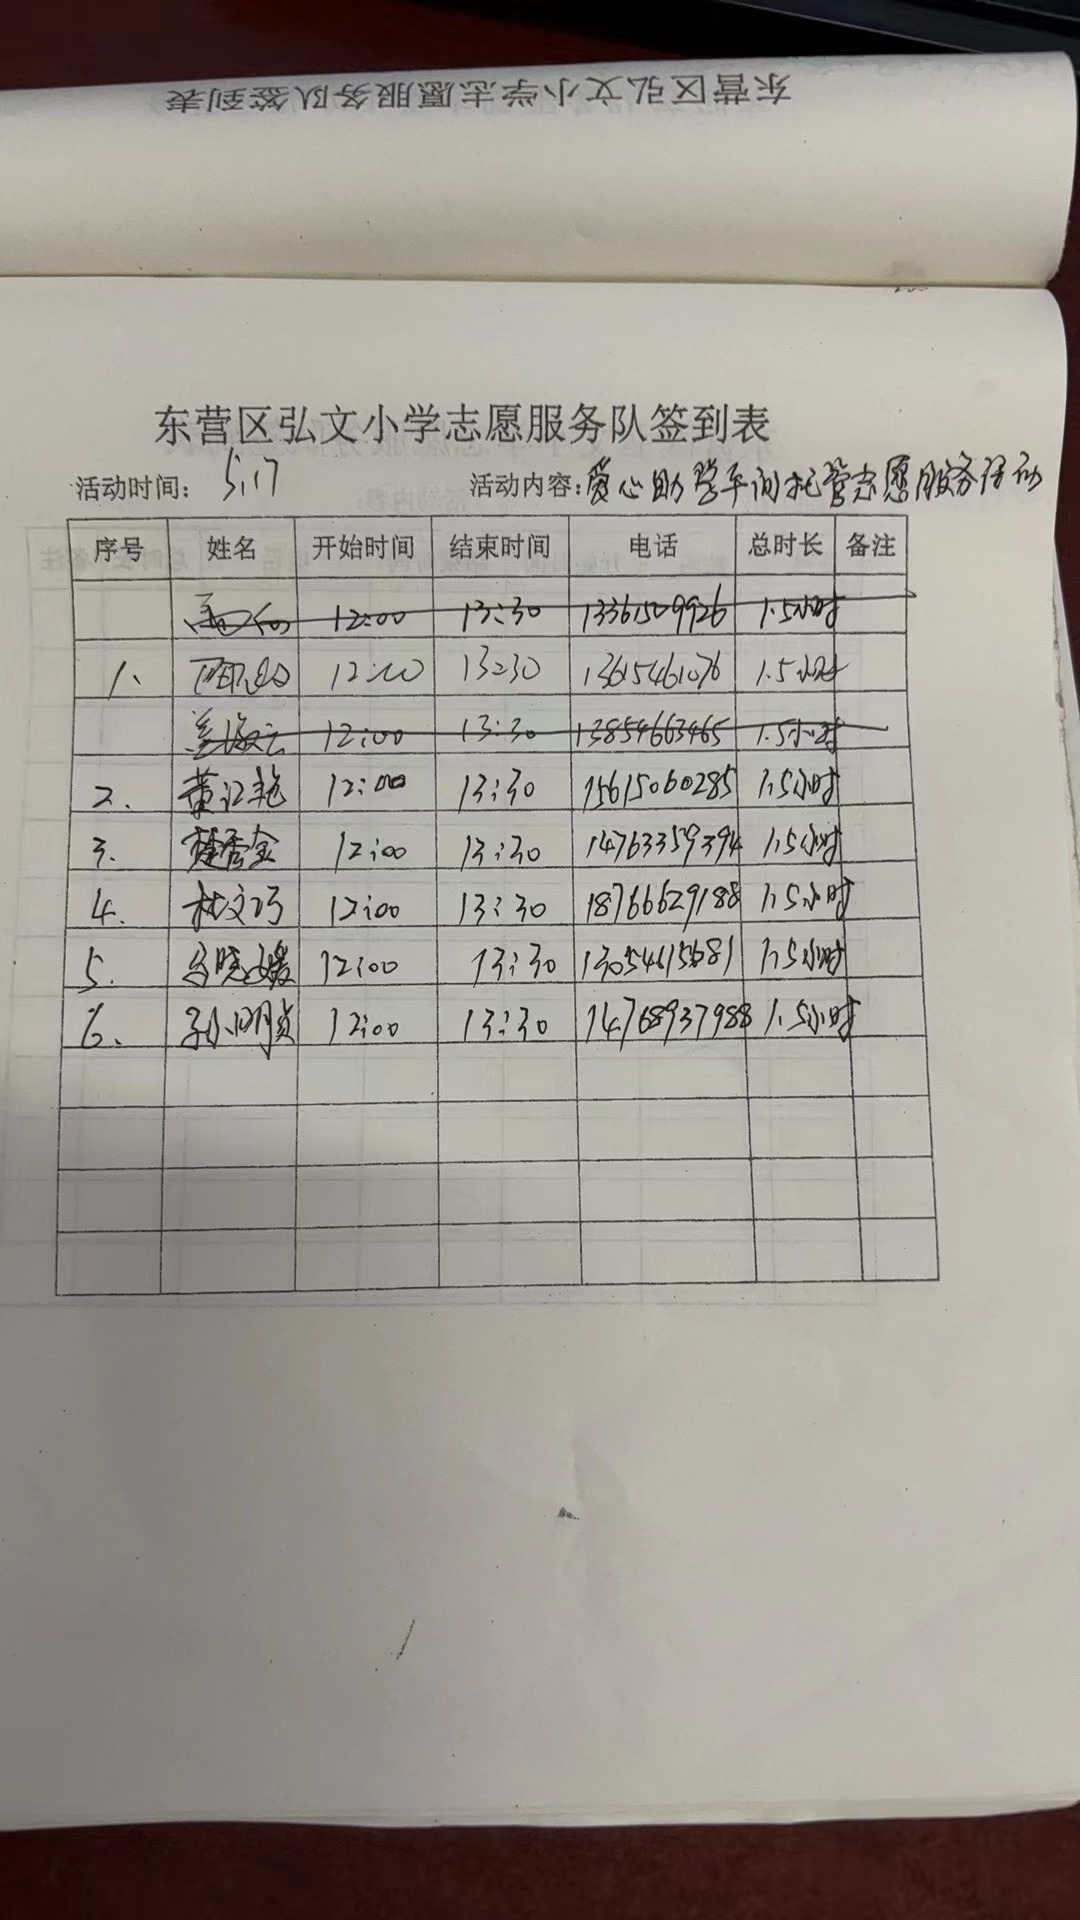 东营区弘文小学志愿服务队签到表
东营区弘文小学志愿服务队签到表
活动时间: 5.17 活动内容:爱心助学午间托管志愿服务活动
序号 姓名 开始时间 结束时间 电话 总时长 备注
12:00 13:30 13361509926 1.5小时
1. 12:00 13:30 13615461076 1.5小时
姜海云 12:00 13:30 13854663465 1.5小时
2. 董江艳 12:00 13:30 15615060285 1.5小时
3. 楚秀金 12:00 13:30 14763359394 1.5小时
4. 杜文巧 12:00 13:30 18766629188 1.5小时
5. 晓媛 12:00 13:30 13054615681 1.5小时
6. 孙明贞 12:00 13:30 14768937988 1.5小时